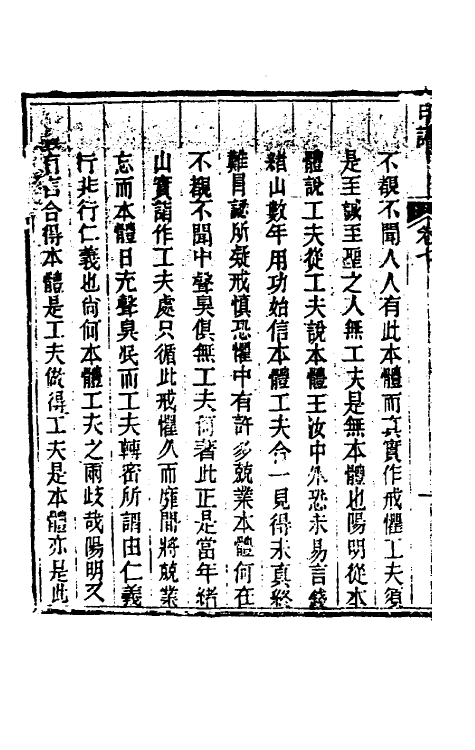 不覩不聞人人有此本體而真實作戒懼工夫須
是至誠至聖之人無工夫是無本體也陽明從本
體說工夫從工夫說本體王汝中外恐未易言錢
緒山數年用功始信本體工夫合一見得未真終
難冒認所疑戒慎恐懼中有許多兢業本體何在
不覩不聞中聲臭俱無工夫何著此正是當年緒
山實詣作工夫處只循此戒懼久而雍閒將兢業
忘而本體日充聲臭泯而工夫轉密所謂由仁義
行非行仁義也尚何本體工夫之兩歧哉陽明又
有言合得本體是工夫做得工夫是本體亦是此
卷七